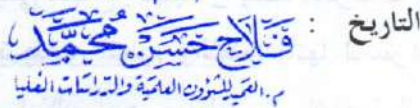 التاريخ :
فلاح حسن محمد
م. العميد للشؤون العلمية والدراسات العليا